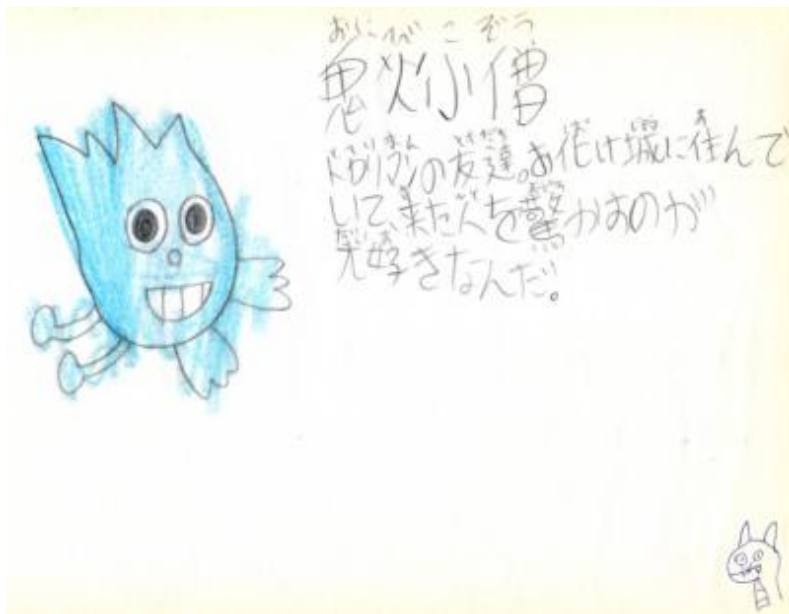 おにびこぞう
鬼火小僧
の友達。お化け城に住んで
いて、来た人を驚かすのが
大好きなんだ。